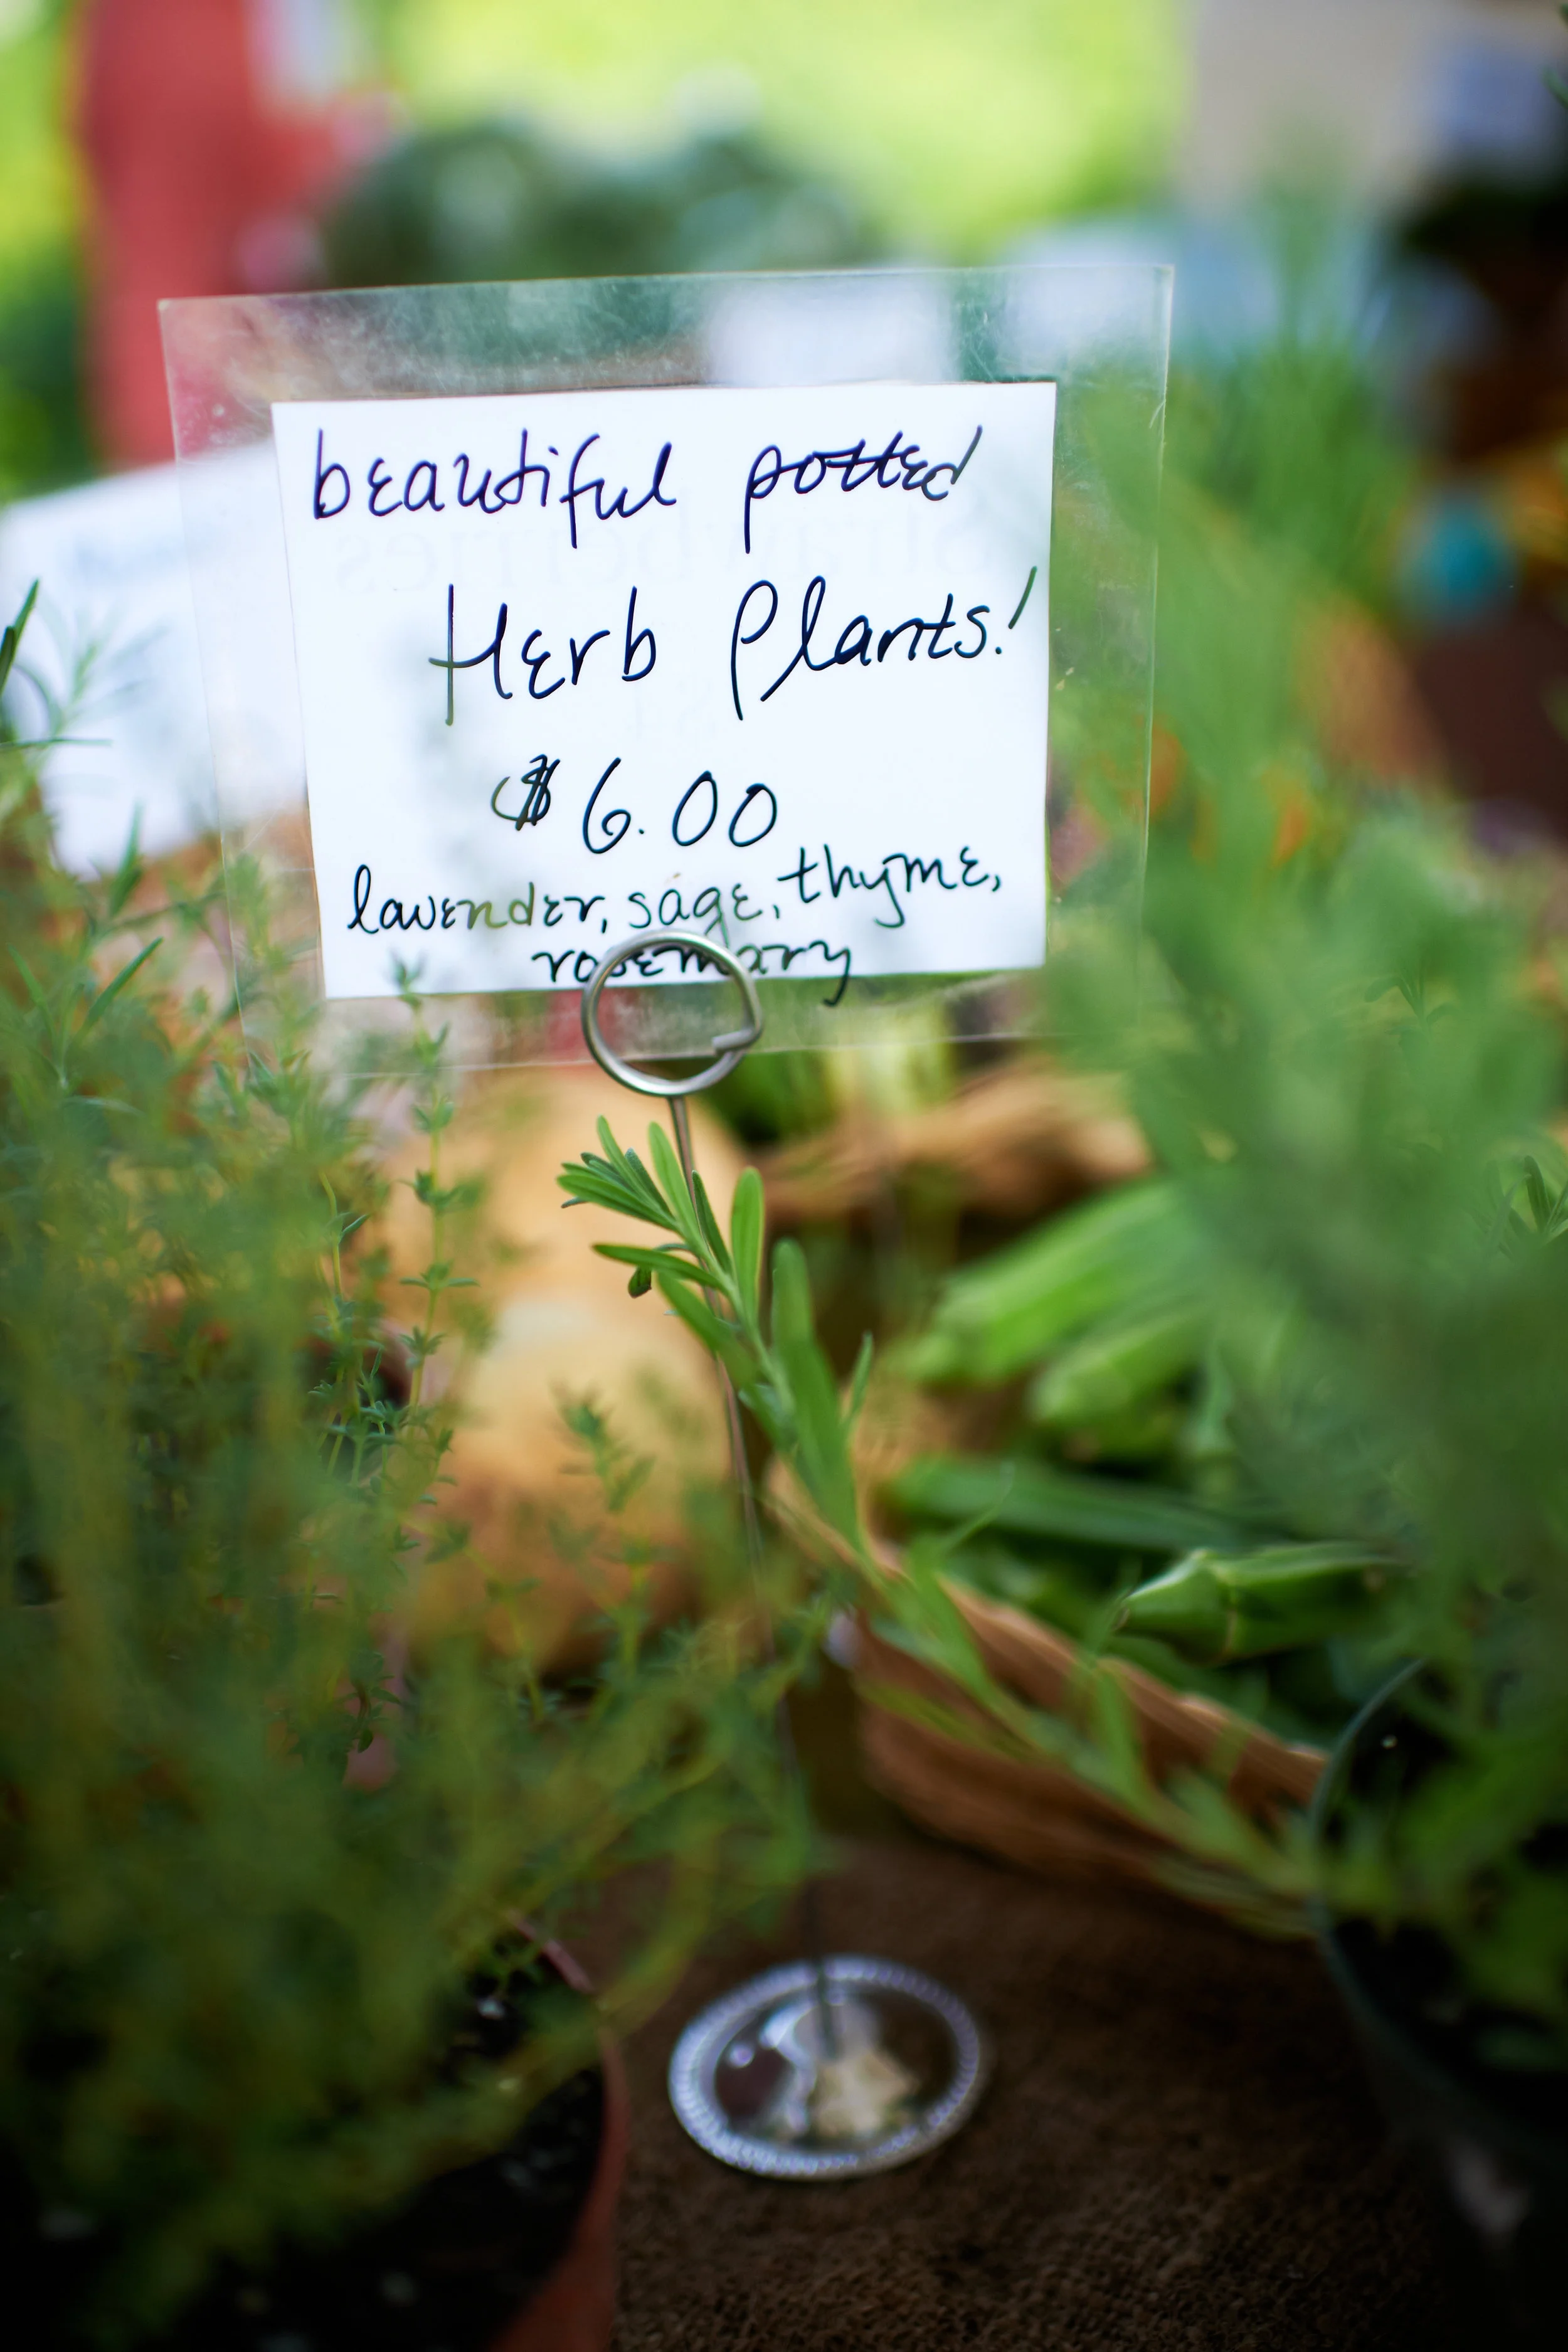 beautiful potted
Herb Plants!
$6.00
lavender, sage, thyme,
rosemary